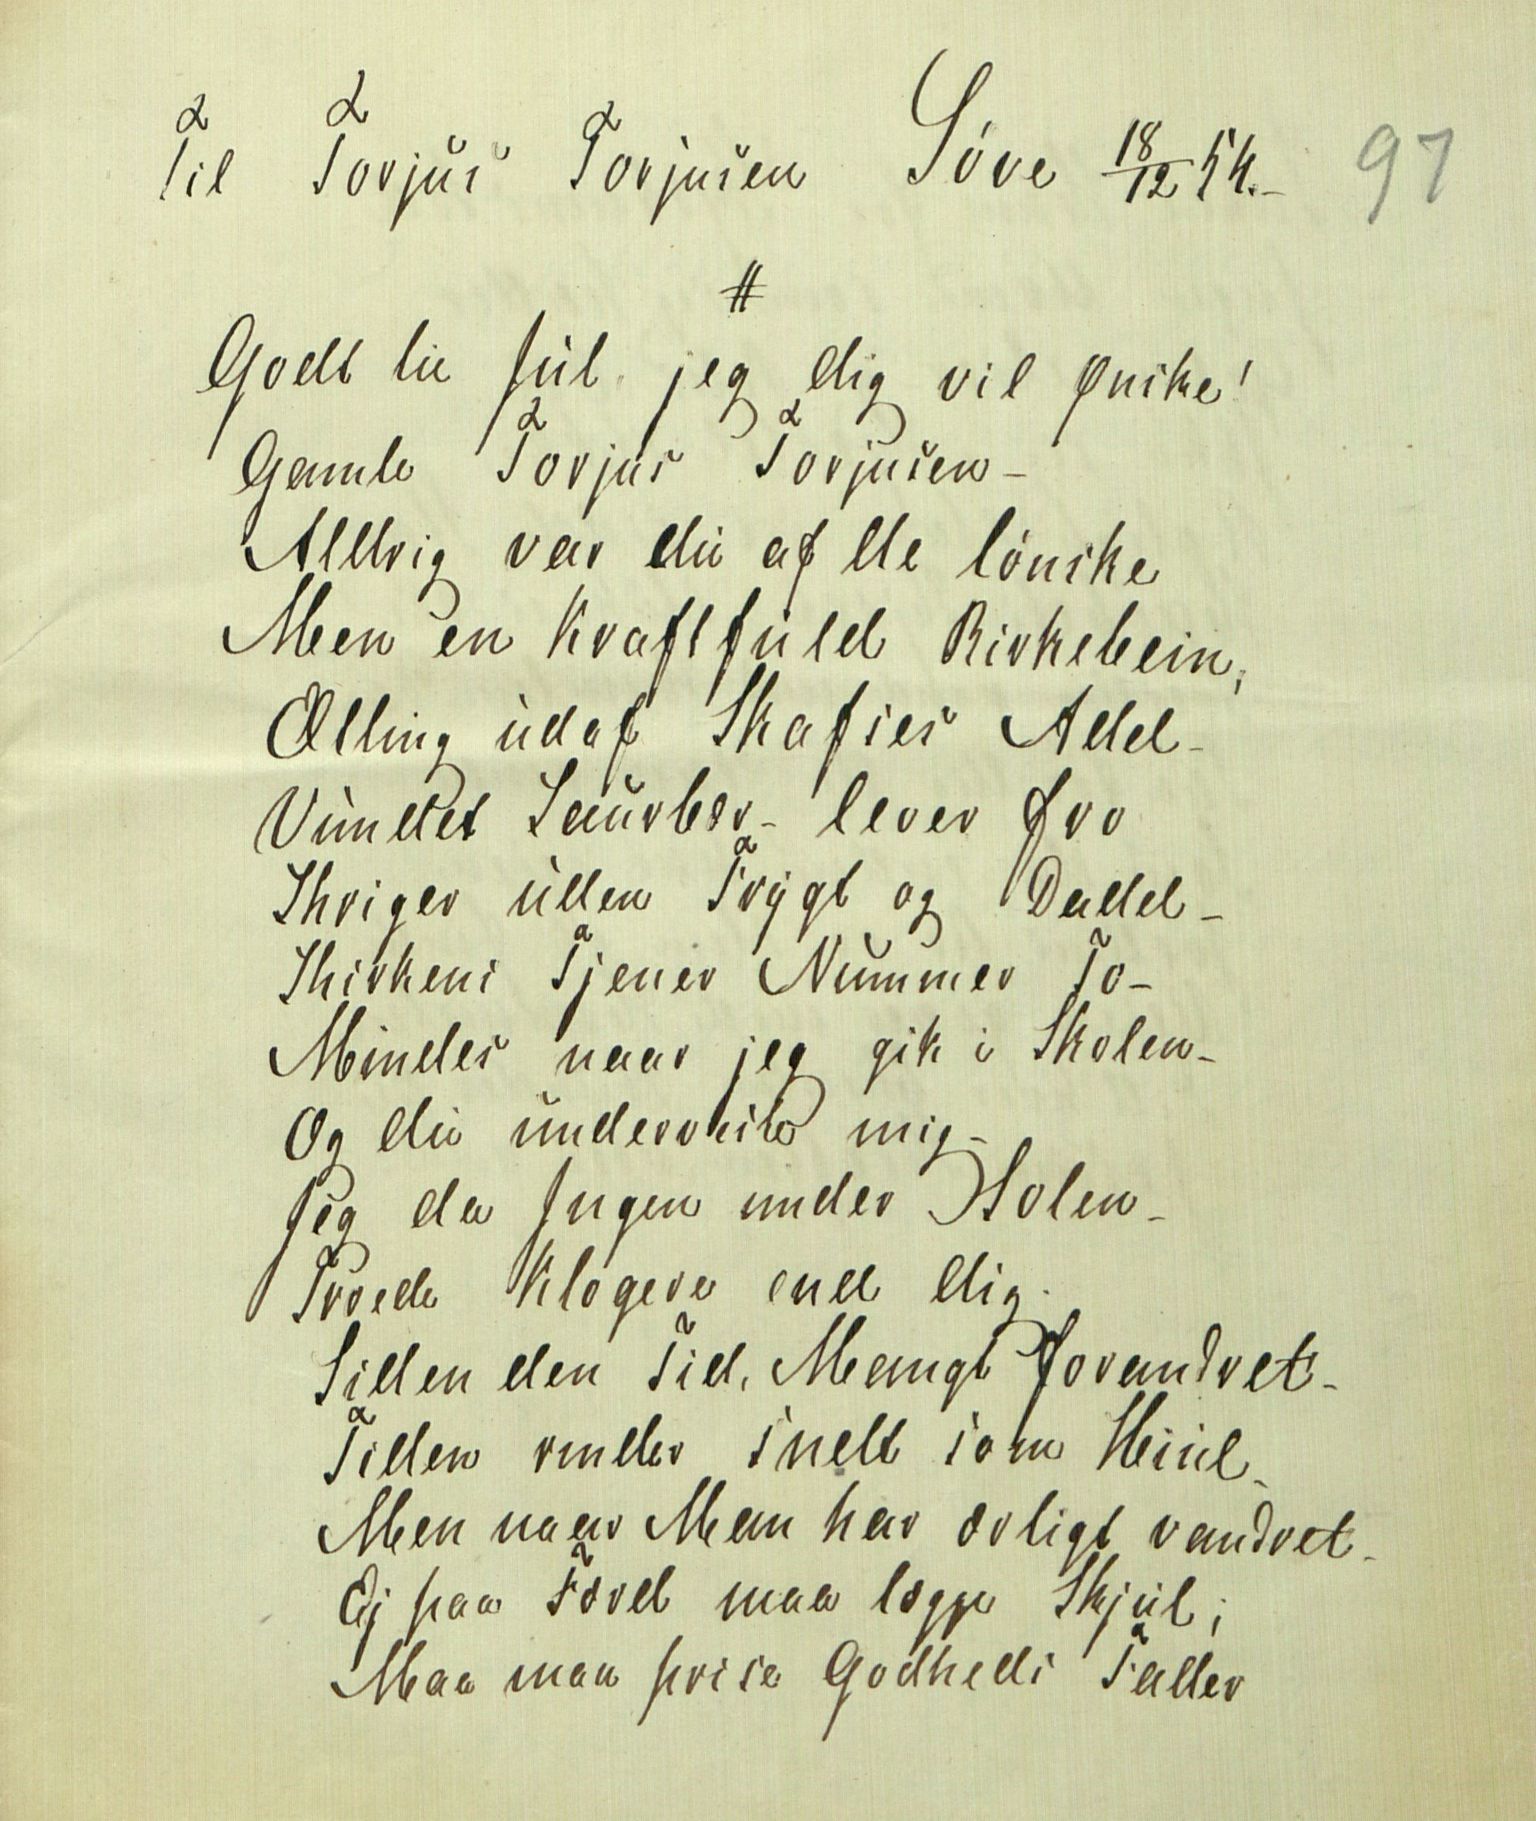 Til Torjus Torjusen Söve 18/12 54.- 97
#
Godt lu Jul jeg dig vil ønske!
Gamle Torjus Torjusen -
Alldrig var du af de lönske
Men en Kraftfuld Birkebein,
Ætling udaf Skafses Addel -
Vundet Laurbær - lever fro
Skriger uden Frygt og Daddel -
Thirkens Tjener Nummer To -
Mindes naar jeg gik i Skolen -
Og du underviste mig -
Jeg da Ingen under Solen -
Troede Klogere end dig.
Siden den Tid, Mangt forandret -
Tiden runder snelt som Hiul -
Men naar Man har ærligt vandret -
Ej paa Færd maa lægge Skjul;
Maa man prise Godheds Fader